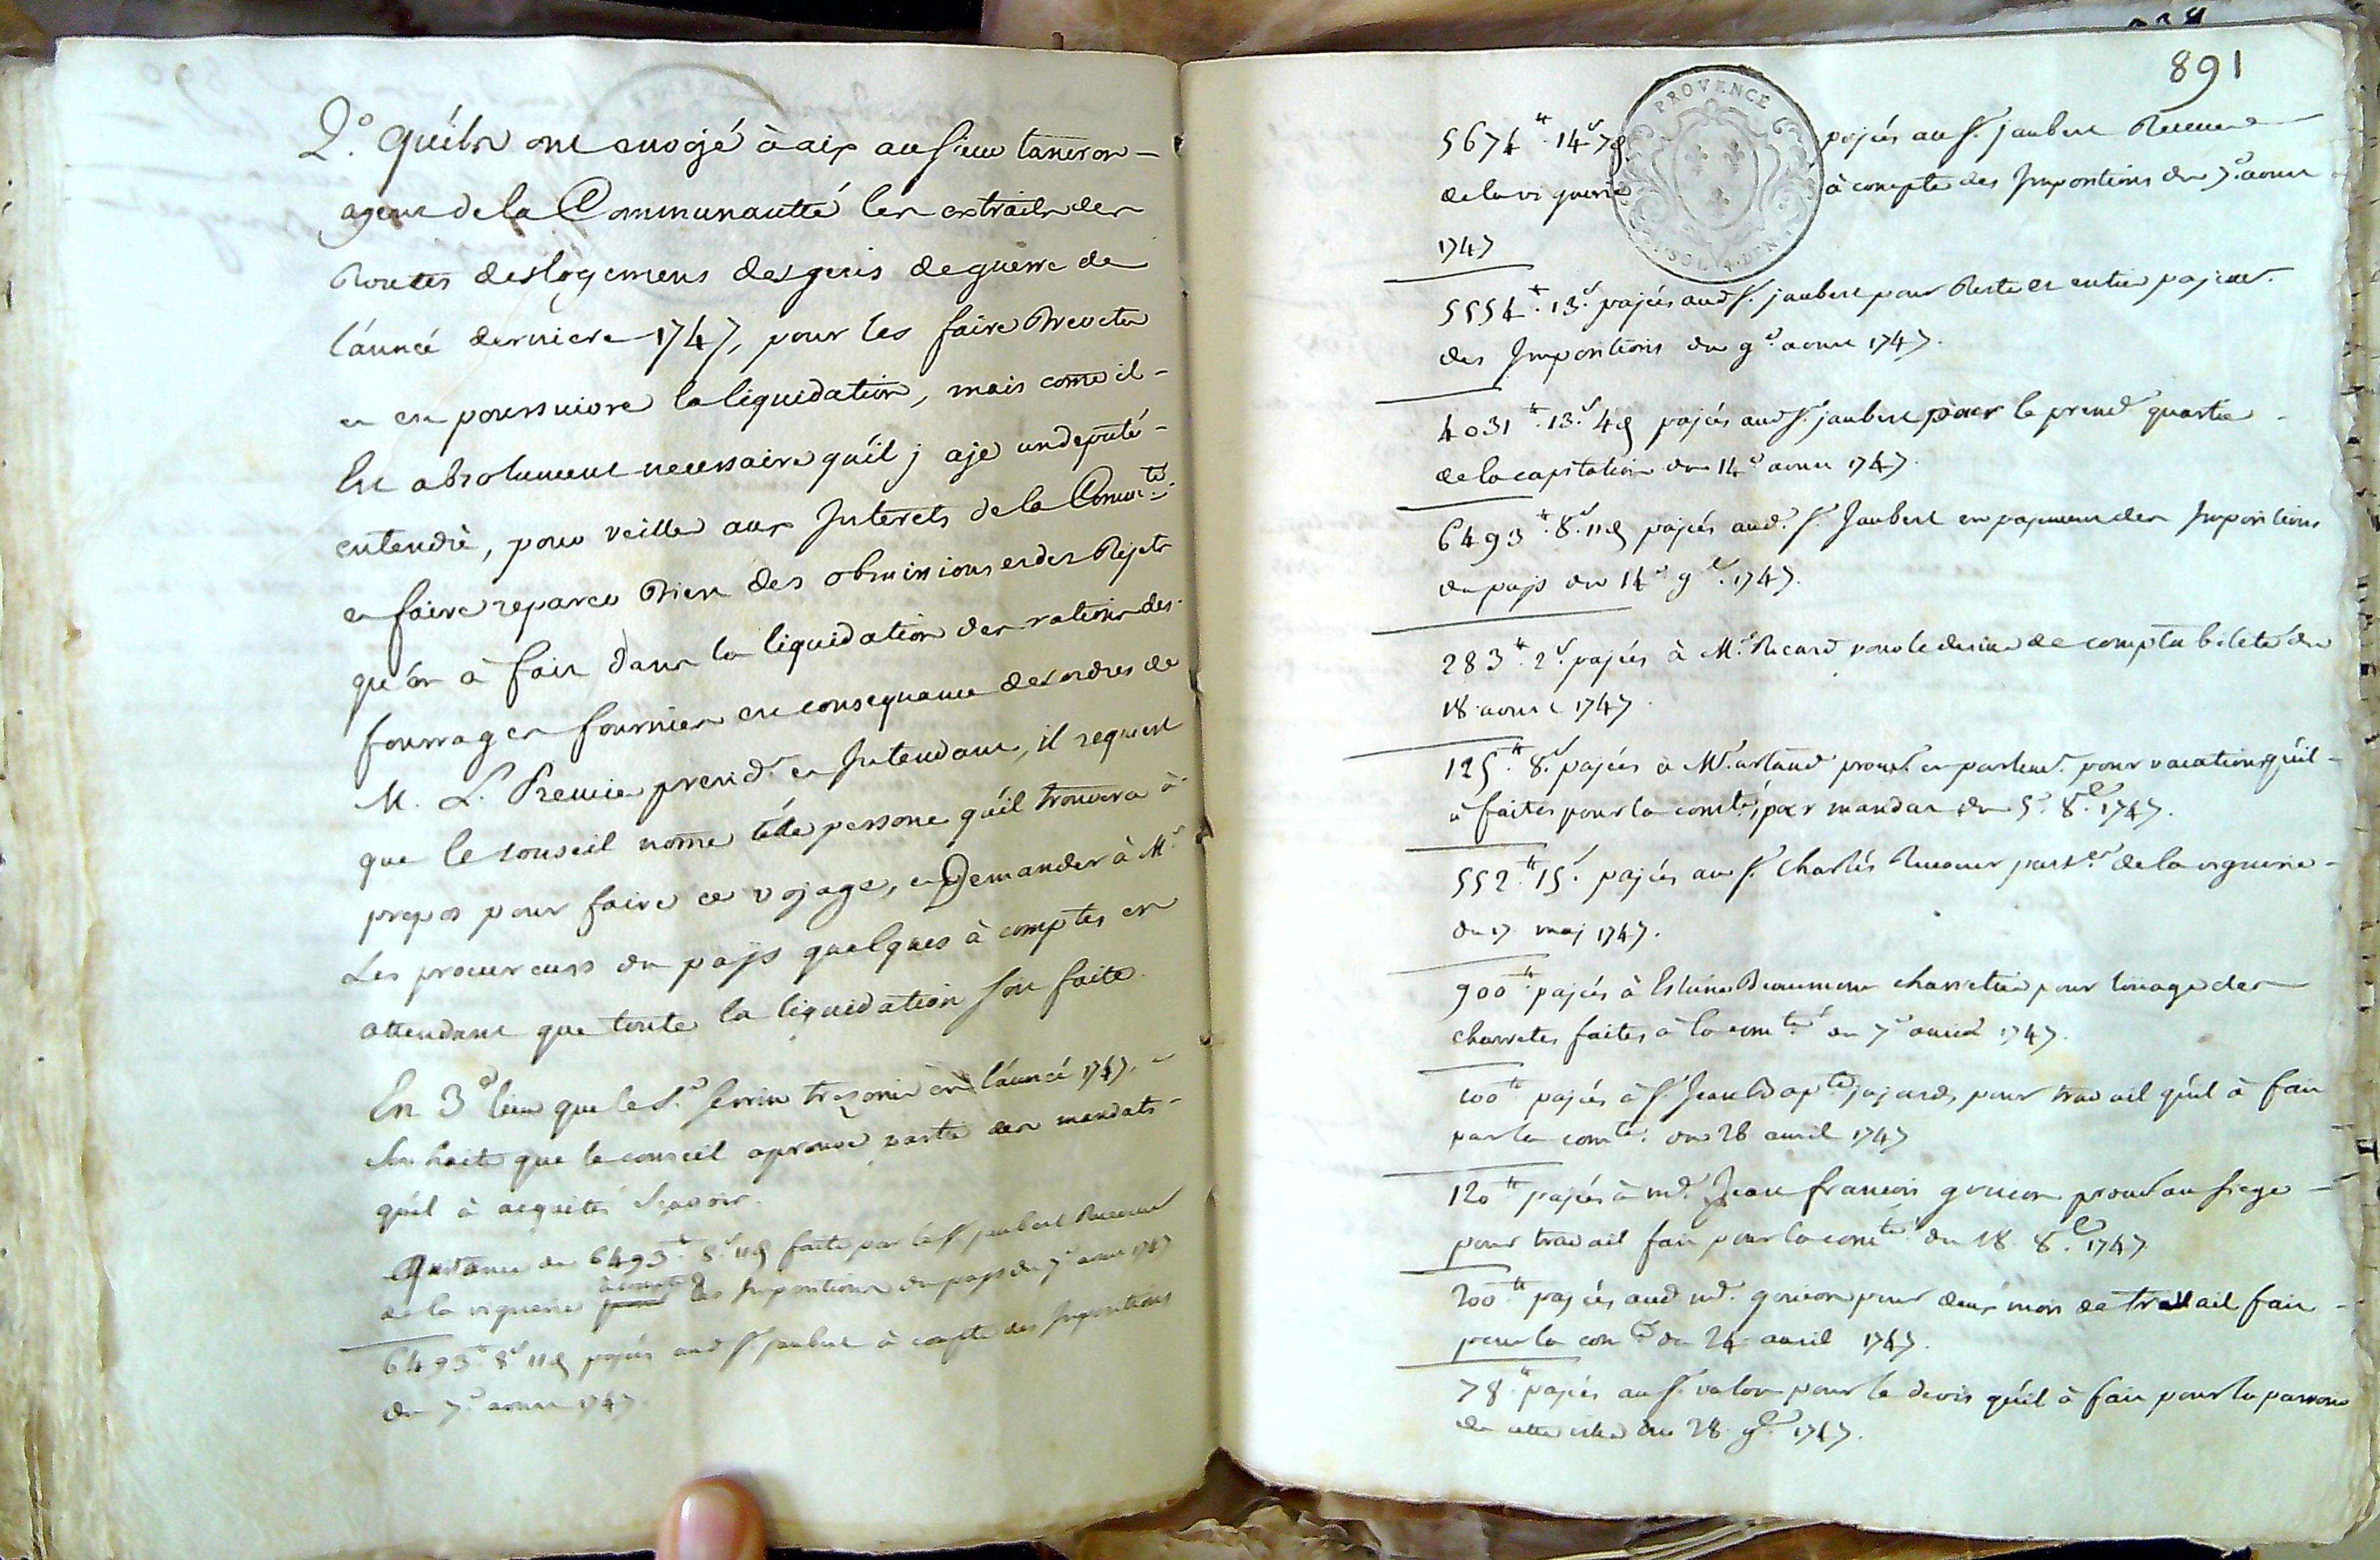 2.° quils ont envojé à aix au sieur taneron
agent de la Communautté les extraits des
Routes des logemens des gens de guerre de
l'année derniere 1747, pour les faire
et en poursuivre la liquidation, mais come il
Est absolument necessaire qu'il j aje un deputé
entendü, pour veiller aux Interets de la Comu.té
et faire reparer Bien des obmissions et des Rejets
qu'on à fait dans la liquidation des rations des
fourrages fournies en consequance des ordres de
M. L. Premier presid.t et Intendant, il requiert
que le conseil nome telle persone qu'il trouvera à
propos pour faire ce vojage, et Demander à M.rs
Les procureurs du paÿs quelques à comptes en
attendant que toute la liquidation soit faite
En 3.e lieu que le S.r tresorier en l'année 1747.
Souhaite que le conseil aprouve partie des mandats
qu'il à aquités Scavoir.
Quittance de 6493.tt 8.s 11 d faite par le s.r jaubert Receveur
de la viguerie à compte des Impositions du pays du 7.e aoust 1747
6493.tt 8.s 11 d pajés aud s.r jaubert à compte des Impositions
du 7.e aoust 1747.
891
PROVENCE
SOL 4. DEN
5674.tt 14.s 7 d pajés au s.r jaubert Receveur
de la viguerie à compte des Impositions du 7.e aoust
1747
5554.tt 13.s pajés aud s.r jaubert pour Reste et entier pajem.t
des Impositions du 9.e aoust 1747.
4031.tt 13.s 4 d pajés aud s.r jaubert pour le premier quartier
de la capitation du 14.e aoust 1747.
6493.tt 8.s 11 d pajés aud. s.r Jaubert en pajement des Impositions
du pays du 14.e 9.e 1747.
283.tt 2.s pajés à M.e Ricard pour le de comptabileté du
18 aoust 1747.
125.tt 8.s pajés à M.e artaud procur. en parlem.t pour vacations qu'il
à faites pour la com.té, par mandat du 5.e 8.e 1747.
552.tt 15.s pajés au s.r Charles Receveur part.er de la viguerie
du 17 maj 1747.
900.tt pajés à Estiene Beaumont charretier pour loüage des
charretes faites à la com.té du 7.e 1747.
100.tt pajés à s.r Jean Bap.te jajard, pour travail qu'il à fait
par la com.té du 28 avril 1747
120.tt pajés à m.e Jean francois gouion procur au siege
pour travail fait pour la com.té du 18 8.e 1747
200.tt pajés aud m.e gouion pour deux mois de travail fait
pour la com.té du 24 avril 1747.
78.tt pajés au s.r valon pour le devis qu'il à fait pour la parroisse
de cette ville du 28. 9.e 1747.